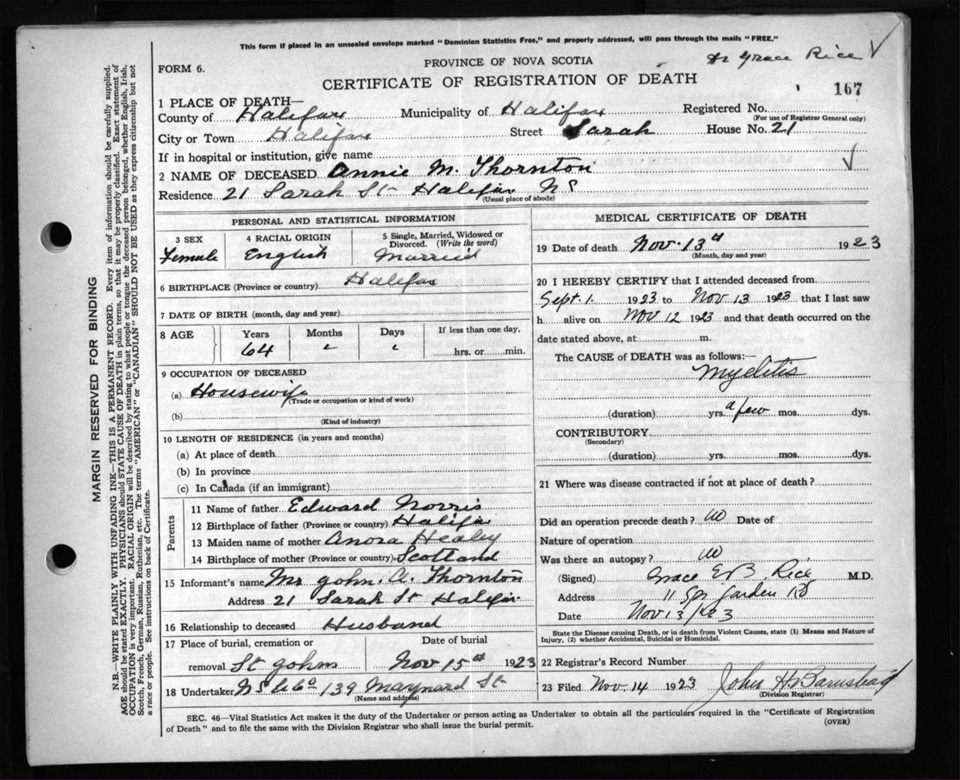 This form if placed in an unsealed envelope marked "Dominion Statistics Free," and properly addressed, will pass through the mails "FREE."
Dr Grace Rice
PROVINCE OF NOVA SCOTIA
FORM 6.
CERTIFICATE OF REGISTRATION OF DEATH
167
1 PLACE OF DEATH—
County of Halifax Municipality of Halifax Registered No.
(For use of Registrar General only)
City or Town Halifax Street Sarah House No. 21
If in hospital or institution, give name
2 NAME OF DECEASED Annie M. Thornton
Residence 21 Sarah St Halifax NS
(Usual place of abode)
PERSONAL AND STATISTICAL INFORMATION
3 SEX 4 RACIAL ORIGIN 5 Single, Married, Widowed or Divorced. (Write the word)
Female English Married
6 BIRTHPLACE (Province or country) Halifax
7 DATE OF BIRTH (month, day and year)
8 AGE Years Months Days If less than one day,
64 hrs. or min.
9 OCCUPATION OF DECEASED
(a) Housewife
(Trade or occupation or kind of work)
(b)
(Kind of industry)
10 LENGTH OF RESIDENCE (in years and months)
(a) At place of death
(b) In province
(c) In Canada (if an immigrant)
Parents
11 Name of father Edward Norris
12 Birthplace of father (Province or country) Halifax
13 Maiden name of mother Anora Healey
14 Birthplace of mother (Province or country) Scotland
15 Informant's name Mr John. A. Thornton
Address 21 Sarah St Halifax
16 Relationship to deceased Husband
17 Place of burial, cremation or Date of burial
removal St Johns Nov 15th 1923
18 Undertaker NS 139 Maynard St
(Name and address)
MEDICAL CERTIFICATE OF DEATH
19 Date of death Nov. 13th 1923
(Month, day and year)
20 I HEREBY CERTIFY that I attended deceased from
Sept. 1. 1923 to Nov 13 1923 that I last saw
h alive on Nov 12 1923 and that death occurred on the
date stated above, at m.
The CAUSE of DEATH was as follows:—
Myelitis
(duration) yrs. a few mos. dys.
CONTRIBUTORY
(Secondary)
(duration) yrs. mos. dys.
21 Where was disease contracted if not at place of death?
Did an operation precede death? no Date of
Nature of operation
Was there an autopsy? no
(Signed) Grace E B. Rice M.D.
Address 11 Spr Garden Rd
Date Nov 13/1923
State the Disease causing Death, or in death from Violent Causes, state (1) Means and Nature of
Injury, (2) whether Accidental, Suicidal or Homicidal.
22 Registrar's Record Number
23 Filed Nov. 14 1923 John H. Barnstead
Division Registrar
SEC. 46—Vital Statistics Act makes it the duty of the Undertaker or person acting as Undertaker to obtain all the particulars required in the "Certificate of Registration
of Death" and to file the same with the Division Registrar who shall issue the burial permit.
(OVER)
MARGIN RESERVED FOR BINDING
N.B.—WRITE PLAINLY WITH UNFADING INK—THIS IS A PERMANENT RECORD. Every item of information should be carefully supplied.
AGE should be stated EXACTLY. PHYSICIANS should STATE CAUSE OF DEATH in plain terms, so that it may be properly classified. Exact statement of
OCCUPATION is very important. RACIAL ORIGIN will be described by stating to what people or tongue the deceased person belonged, whether English, Irish,
Scotch, French, German, Russian, Ruthenian, etc. The terms "AMERICAN" or "CANADIAN" SHOULD NOT BE USED as they express citizenship but not
a race or people. See instructions on back of Certificate.